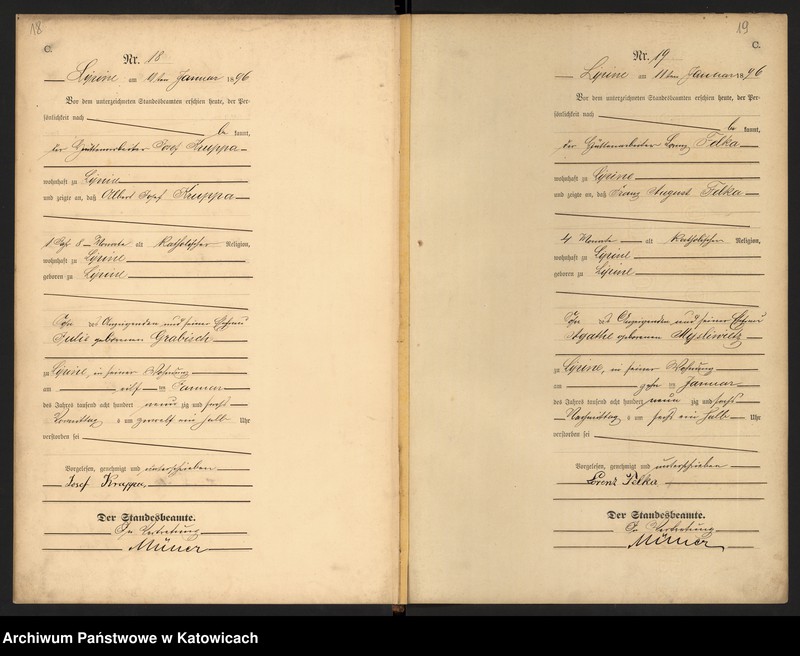 18
C.
Nr. 18
Lipine am 11ten Januar 1896
Vor dem unterzeichneten Standesbeamten erschien heute, der Per-
sönlichkeit nach
be kannt,
der Hüttenarbeiter Josef Kruppa
wohnhaft zu Lipine
und zeigte an, daß Albert Josef Kruppa
1 Jahr 8 Monate alt katholischer Religion,
wohnhaft zu Lipine
geboren zu Lipine
Sohn des Anzeigenden und seiner Ehefrau
Julie geborenen Grabisch
zu Lipine, in seiner Wohnung
am elf ten Januar
des Jahres tausend acht hundert neun zig und sechs
Vormittag s um zwoelf ein halb Uhr
verstorben sei
Vorgelesen, genehmigt und unterschrieben
Josef Kruppa
Der Standesbeamte.
In Vertretung
19
C.
Nr. 19
Lipine am 11ten Januar 1896
Vor dem unterzeichneten Standesbeamten erschien heute, der Per-
sönlichkeit nach
be kannt,
der Hüttenarbeiter Lorenz Pelka
wohnhaft zu Lipine
und zeigte an, daß Franz August Pelka
4 Monate alt katholischer Religion,
wohnhaft zu Lipine
geboren zu Lipine
Sohn des Anzeigenden und seiner Ehefrau
Agathe geborenen Mysliwietz
zu Lipine, in seiner Wohnung
am zehn ten Januar
des Jahres tausend acht hundert neun zig und sechs
Nachmittag s um sechs ein halb Uhr
verstorben sei
Vorgelesen, genehmigt und unterschrieben
Lorenz Pelka
Der Standesbeamte.
In Vertretung
Archiwum Państwowe w Katowicach